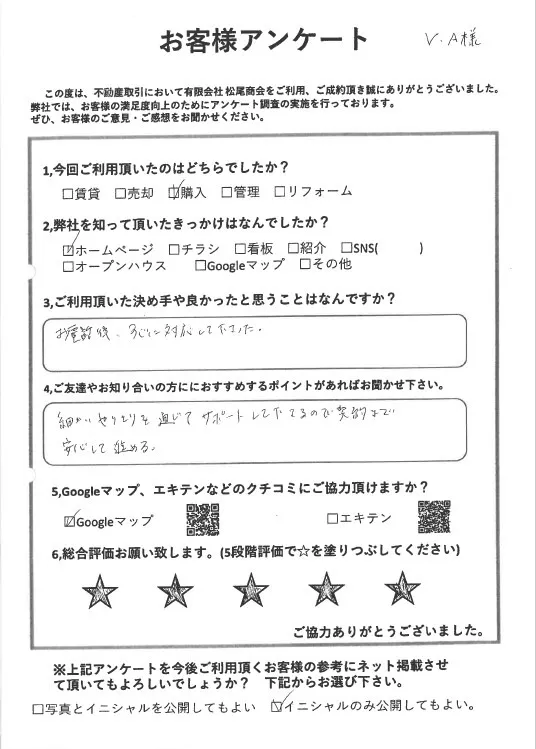 お客様アンケート
V.A様
この度は、不動産取引において有限会社 松尾商会をご利用、ご成約頂き誠にありがとうございました。
弊社では、お客様の満足度向上のためにアンケート調査の実施を行っております。
ぜひ、お客様のご意見・ご感想をお聞かせください。
1,今回ご利用頂いたのはどちらでしたか？
□賃貸 □売却 ☑購入 □管理 □リフォーム
2,弊社を知って頂いたきっかけはなんでしたか？
☑ホームページ □チラシ □看板 □紹介 □SNS( )
□オープンハウス □Googleマップ □その他
3,ご利用頂いた決め手や良かったと思うことはなんですか？
お電話後、すぐに対応して下さった。
4,ご友達やお知り合いの方ににおすすめするポイントがあればお聞かせ下さい。
細かいやりとりを通じてサポートして下さるので契約まで
安心して進める。
5,Googleマップ、エキテンなどのクチコミにご協力頂けますか？
☑Googleマップ □エキテン
6,総合評価お願い致します。(5段階評価で☆を塗りつぶしてください)
★ ★ ★ ★ ★
ご協力ありがとうございました。
※上記アンケートを今後ご利用頂くお客様の参考にネット掲載させ
て頂いてもよろしいでしょうか？ 下記からお選び下さい。
□写真とイニシャルを公開してもよい ☑イニシャルのみ公開してもよい。